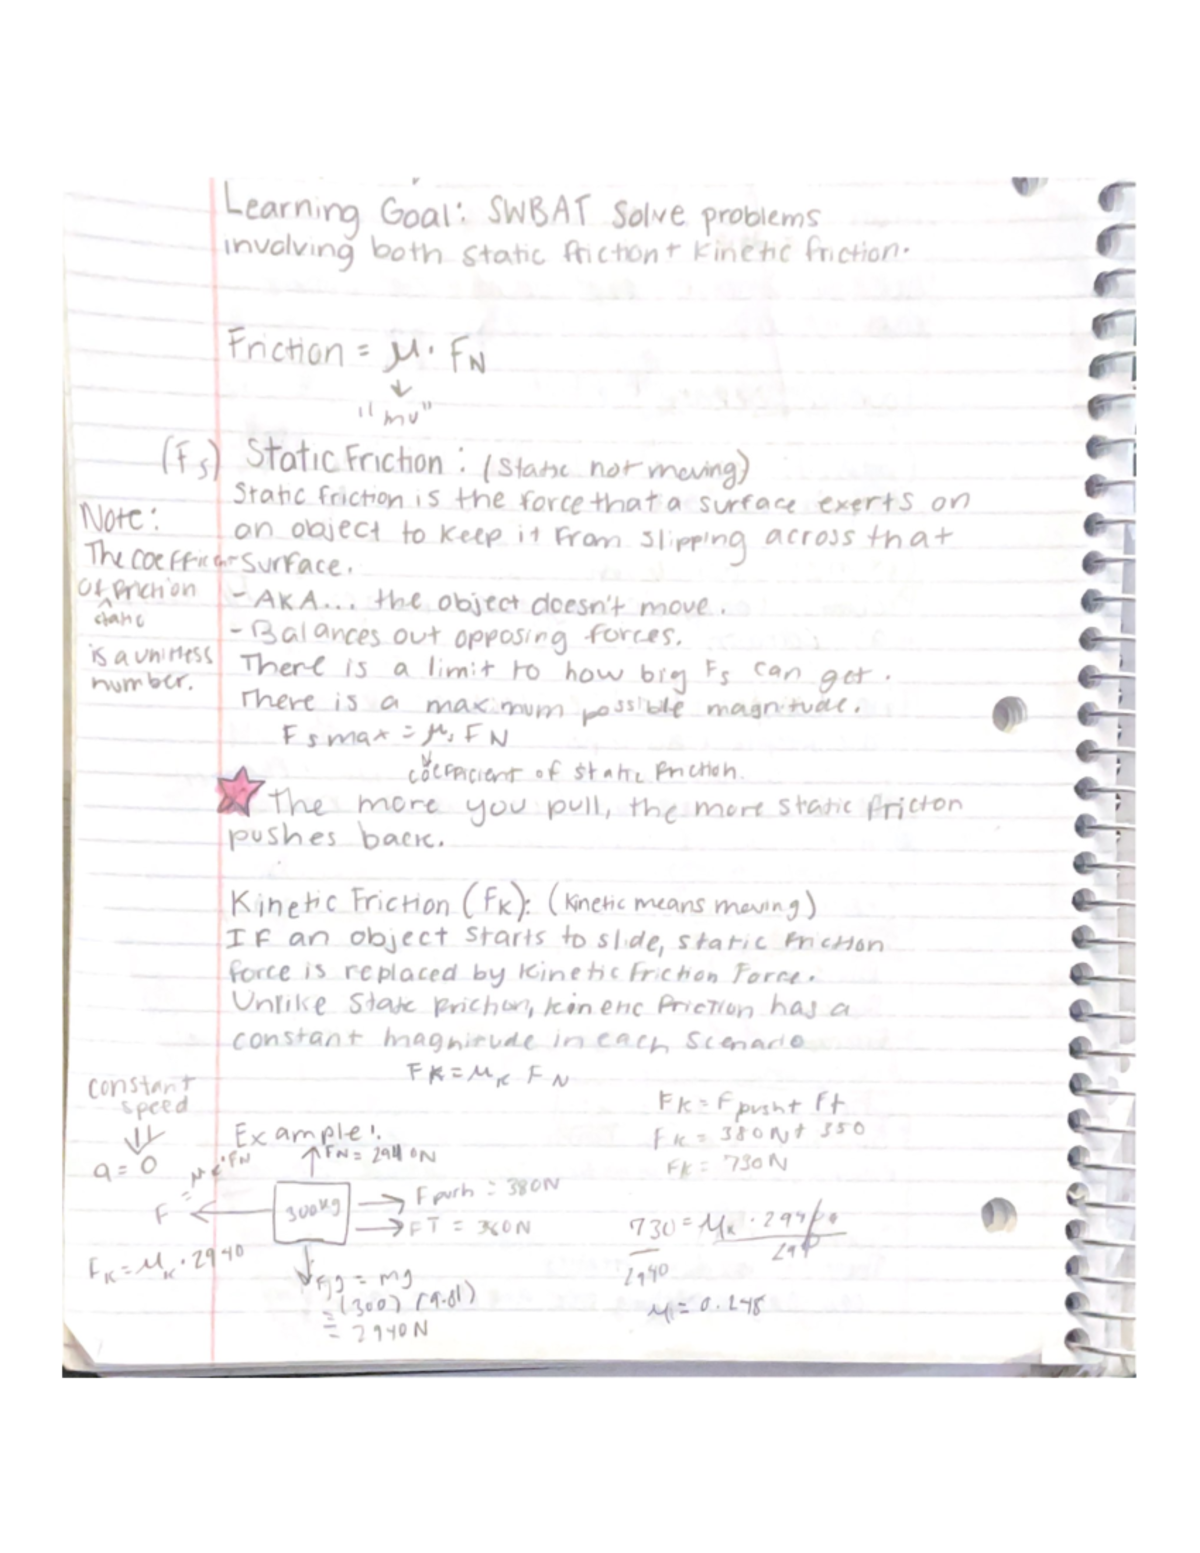 Learning Goal: SWBAT Solve problems
involving both static friction + kinetic friction.
Friction = μ · FN
↓
"mu"
(Fs) Static Friction : (Static not moving)
Static friction is the force that a surface exerts on
an object to keep it from slipping across that
surface.
Note:
The coefficient
of friction
^
static
is a unitless
number.
- AKA... the object doesn't move.
- Balances out opposing forces.
There is a limit to how big Fs can get.
There is a maximum possible magnitude.
Fs max = μs FN
↓
coefficient of static friction.
The more you pull, the more static friction
pushes back.
Kinetic Friction (FK): (kinetic means moving)
If an object starts to slide, static friction
force is replaced by kinetic friction force.
Unlike static friction, kinetic friction has a
constant magnitude in each scenario
FK = μK FN
constant
speed
a = 0
Example:
FN = 2940N
μK·FN
=
F
300kg
F push = 380N
FT = 350N
FK = μK · 2940
Fg = mg
= (300) (9.81)
= 2940N
FK = F push + Ft
FK = 380N + 350
FK = 730N
730 = μK · 2940
2940
μ = 0.248